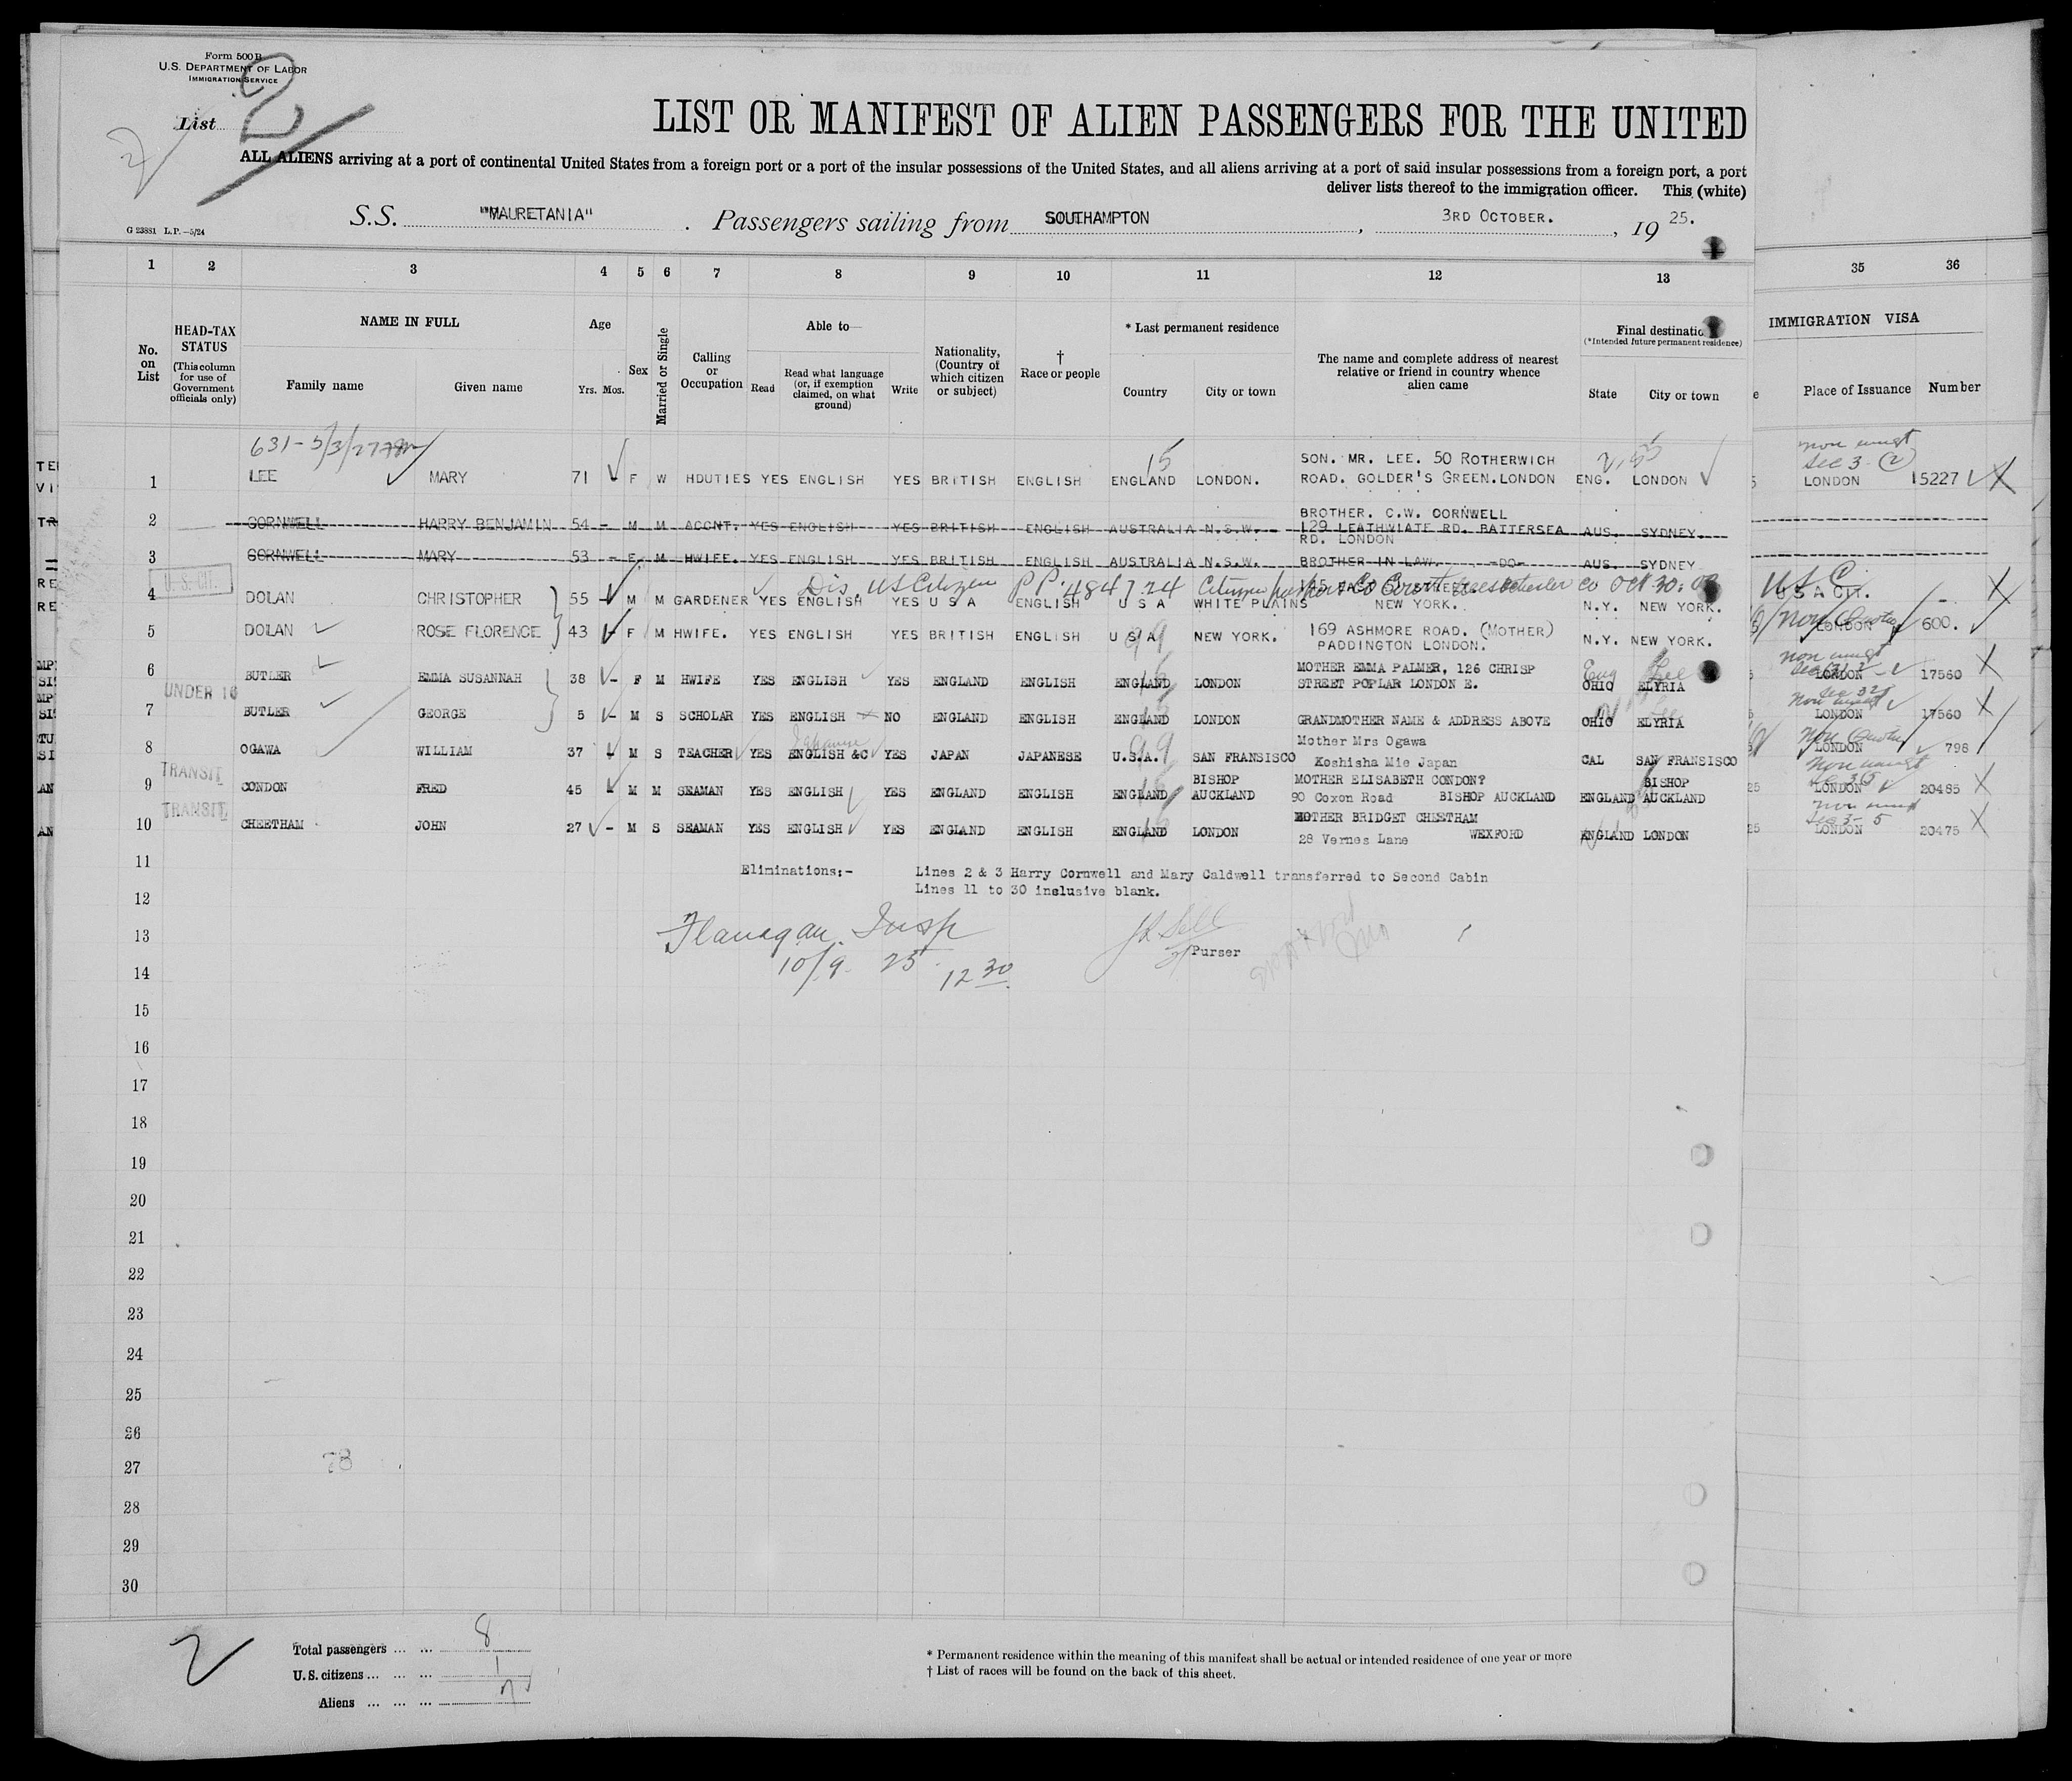 Form 500 B
U.S. DEPARTMENT OF LABOR
IMMIGRATION SERVICE
List 2
LIST OR MANIFEST OF ALIEN PASSENGERS FOR THE UNITED
ALL ALIENS arriving at a port of continental United States from a foreign port or a port of the insular possessions of the United States, and all aliens arriving at a port of said insular possessions from a foreign port, a port
deliver lists thereof to the immigration officer. This (white)
S.S. "MAURETANIA" . Passengers sailing from SOUTHAMPTON , 3RD OCTOBER. , 19 25.
G 23881 L.P.—5/24
1 2 3 4 5 6 7 8 9 10 11 12 13 35 36
No. on List
HEAD-TAX STATUS (This column for use of Government officials only)
NAME IN FULL
Family name Given name
Age Yrs. Mos.
Sex
Married or Single
Calling or Occupation
Able to—
Read Read what language (or, if exemption claimed, on what ground) Write
Nationality, (Country of which citizen or subject)
† Race or people
* Last permanent residence
Country City or town
The name and complete address of nearest relative or friend in country whence alien came
Final destination
(*Intended future permanent residence)
State City or town
IMMIGRATION VISA
Place of Issuance Number
631 - 5/3/27
15
SON. MR. LEE. 50 ROTHERWICH
Sec 3 (2)
1 LEE MARY 71 - F W HDUTIES YES ENGLISH YES BRITISH ENGLISH ENGLAND LONDON. ROAD. GOLDER'S GREEN. LONDON ENG. LONDON LONDON 15227
BROTHER. C.W. CORNWELL
2 CORNWELL HARRY BENJAMIN 54 - M M ACCNT. YES ENGLISH YES BRITISH ENGLISH AUSTRALIA N.S.W. 129 LEATHWIATE RD. BATTERSEA AUS. SYDNEY.
RD. LONDON
3 CORNWELL MARY 53 - F M HWIFE. YES ENGLISH YES BRITISH ENGLISH AUSTRALIA N.S.W. BROTHER-IN-LAW. -DO- AUS. SYDNEY
U.S. CIT.
Dis. US Citizen PP. 484724 Citizen Co Court Westchester Co Oct 30.
U S C
4 DOLAN CHRISTOPHER 55 - M M GARDENER YES ENGLISH YES U S A ENGLISH U S A WHITE PLAINS NEW YORK. N.Y. NEW YORK. U S A CIT. -
5 DOLAN ROSE FLORENCE 43 - F M HWIFE. YES ENGLISH YES BRITISH ENGLISH U S A NEW YORK. 169 ASHMORE ROAD. (MOTHER) N.Y. NEW YORK. LONDON 600.
99
PADDINGTON LONDON.
Non Quota
MOTHER EMMA PALMER, 126 CHRISP
6 BUTLER EMMA SUSANNAH 38 - F M HWIFE YES ENGLISH YES ENGLAND ENGLISH ENGLAND LONDON STREET POPLAR LONDON E. OHIO ELYRIA LONDON 17560
UNDER 16
7 BUTLER GEORGE 5 - M S SCHOLAR YES ENGLISH NO ENGLAND ENGLISH ENGLAND LONDON GRANDMOTHER NAME & ADDRESS ABOVE OHIO ELYRIA LONDON 17560
Japanese
Mother Mrs Ogawa
Non Quota
8 OGAWA WILLIAM 37 - M S TEACHER YES ENGLISH &C YES JAPAN JAPANESE U.S.A. SAN FRANSISCO Koshisha Mie Japan CAL SAN FRANSISCO LONDON 798
99
TRANSIT
BISHOP MOTHER ELISABETH CONDON? BISHOP
9 CONDON FRED 45 - M M SEAMAN YES ENGLISH YES ENGLAND ENGLISH ENGLAND AUCKLAND 90 Coxon Road BISHOP AUCKLAND ENGLAND AUCKLAND LONDON 20485
TRANSIT
MOTHER BRIDGET CHEETHAM
10 CHEETHAM JOHN 27 - M S SEAMAN YES ENGLISH YES ENGLAND ENGLISH ENGLAND LONDON 28 Vernes Lane WEXFORD ENGLAND LONDON LONDON 20475
11 Eliminations:- Lines 2 & 3 Harry Cornwell and Mary Caldwell transferred to Second Cabin
Lines 11 to 30 inclusive blank.
12
13 Flanagan Insp
Purser
14 10/9 25 12 30
15
16
17
18
19
20
21
22
23
24
25
26
27 78
28
29
30
2
Total passengers ... ... 8
U.S. citizens ... ... ... 1
Aliens ... ... ... 7
* Permanent residence within the meaning of this manifest shall be actual or intended residence of one year or more
† List of races will be found on the back of this sheet.